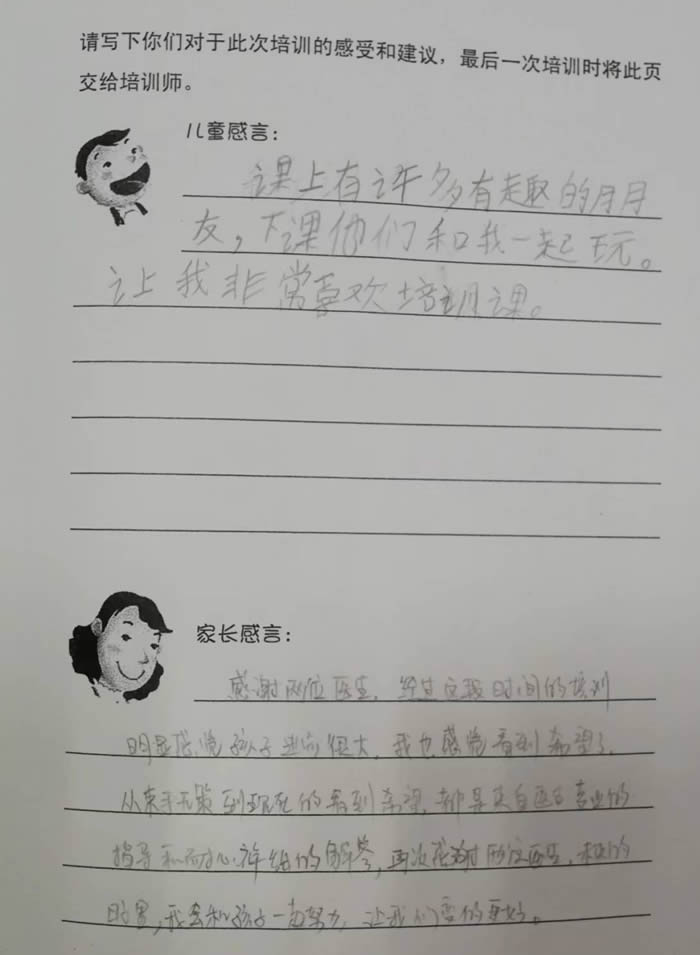 请写下你们对于此次培训的感受和建议，最后一次培训时将此页
交给培训师。
儿童感言：
课上有许多有趣的朋
友，下课他们和我一起玩。
让我非常喜欢培训课。
家长感言：
感谢两位医生，经过这段时间的培训
明显感觉孩子进步很大，我也感觉看到希望了，
从束手无策到现在的看到希望，都是来自医生专业的
指导和耐心详细的解答，再次感谢两位医生，
我会和孩子一起努力，让我们变的更好。